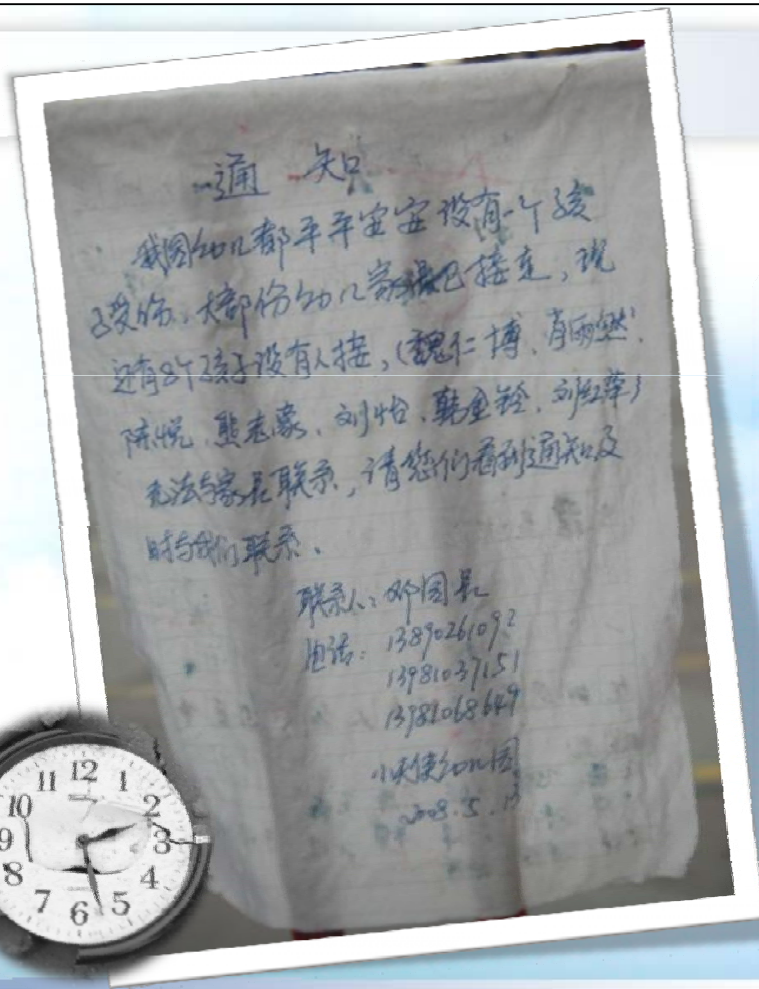 通 知
我园幼儿都平平安安没有一个孩
子受伤，大部份幼儿家长已接走，现
还有8个孩子没有人接，（魏仁博、肖雨然、
陈悦、熊志豪、刘怡、韩金铃、刘红苹）
无法与家长联系，请您们看到通知及
时与我们联系。
联系人：邓园长
电话：13890261092
13981037151
13981068649
小天使幼儿园
2008.5.13
11 12 1
10 2
9 3
8 4
7 6 5